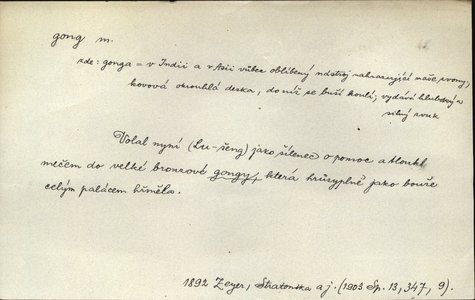 gong m.
zde: gonga = v Indii a v Asii vůbec oblíbený nástroj nahrazující naše zvony,
kovová okrouhlá deska, do níž se buší koulí; vydává hluboký a
silný zvuk
Volal nyní (Lu-šeng) jako šílenec o pomoc a tloukl
mečem do velké bronzové gongy, která hrůzyplně jako bouře
celým palácem hřměla.
1892 Zeyer, Stratonika a j. (1903 Sp. 13, 347, 9).